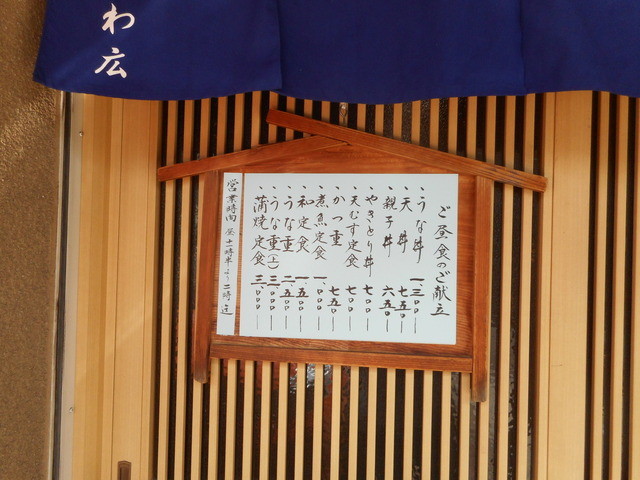 わ広
ご昼食のご献立
・うな丼 一、三〇〇―
・天丼 七五〇―
・親子丼 六五〇―
・やきとり丼 七〇〇―
・天むす定食 七〇〇―
・かつ重 七五〇―
・煮魚定食 一、〇〇〇―
・和定食 一、五〇〇―
・うな重 二、五〇〇―
・うな重(上) 三、〇〇〇―
・蒲焼定食 三、〇〇〇―
営業時間 昼 十一時半より二時迄